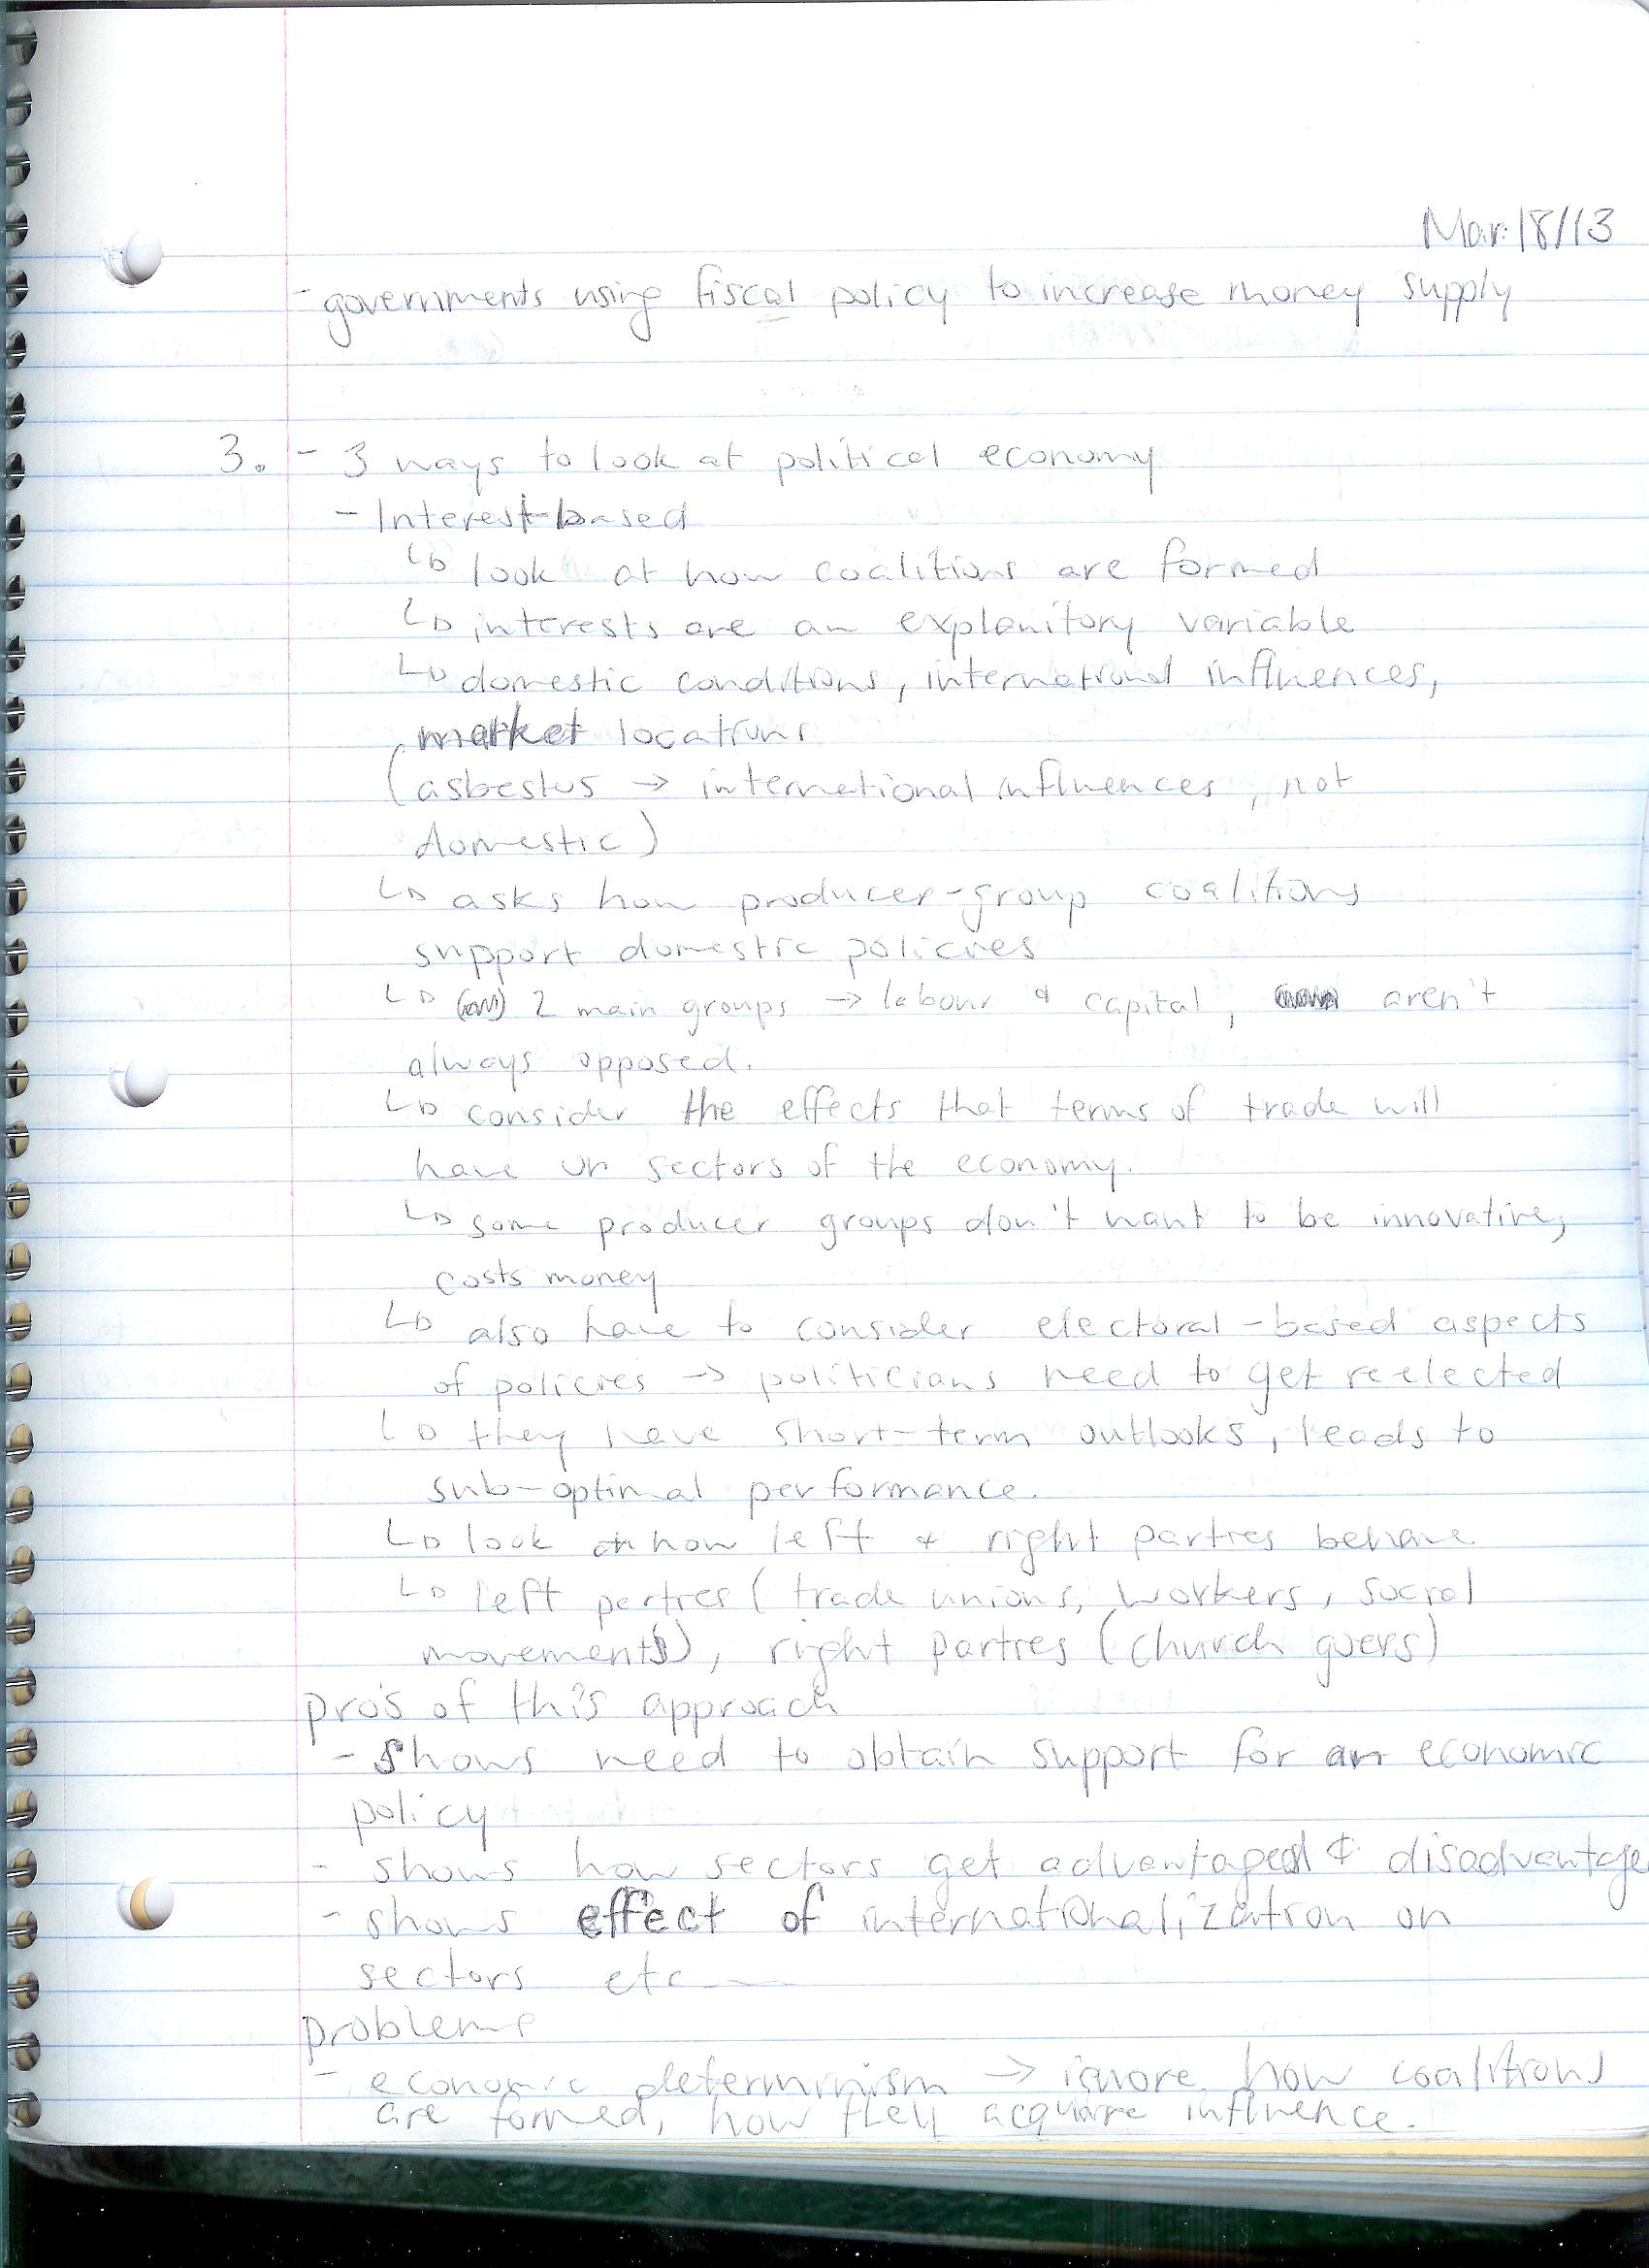 Mar. 18/13
- governments using fiscal policy to increase money supply
3. - 3 ways to look at political economy
- Interest-based
↳ look at how coalitions are formed
↳ interests are an explanitory variable
↳ domestic conditions, international influences,
market locations
(asbestus → international influences, not
domestic)
↳ asks how producer-group coalitions
support domestic policies
↳ 2 main groups → labour & capital, aren't
always opposed.
↳ consider the effects that terms of trade will
have on sectors of the economy.
↳ some producer groups don't want to be innovative,
costs money
↳ also have to consider electoral-based aspects
of policies → politicians need to get re-elected
↳ they have short-term outlooks, leads to
sub-optimal performance.
↳ look at how left & right parties behave
↳ left parties (trade unions, workers, social
movements), right parties (church goers)
pro's of this approach
- shows need to obtain support for an economic
policy
- shows how sectors get advantaged & disadvantage
- shows effect of internationalization on
sectors etc
problems
- economic determinism → ignore how coalitions
are formed, how they acquire influence.